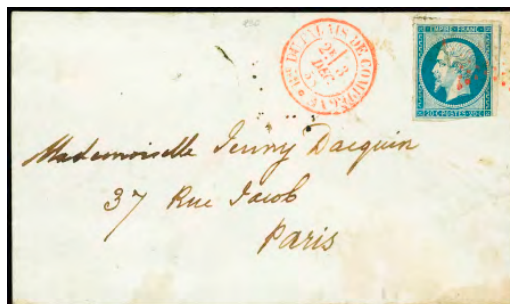 DU PALAIS DE COMPIEGNE
3
DEC.
EMPIRE FRANC
20 C POSTES 20 C
Mademoiselle Jenny Dacquin
37 Rue Jacob
Paris